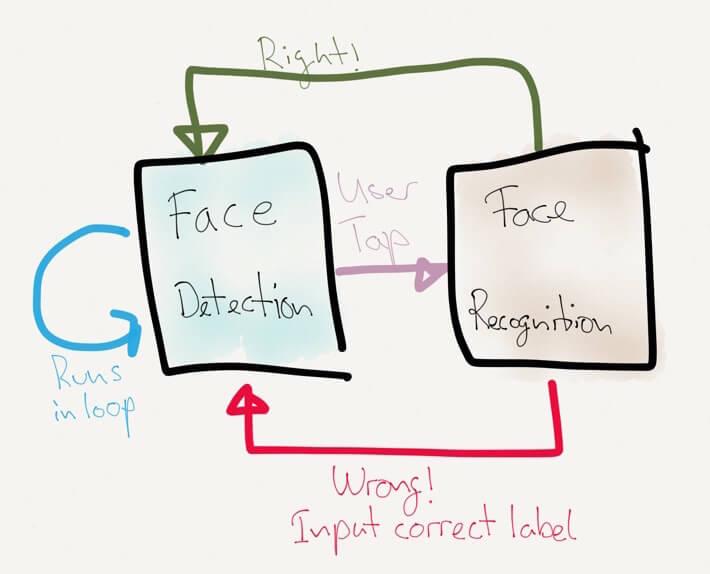 Right!
Face
Detection
User
Tap
Face
Recognition
Runs
in loop
Wrong!
Input correct label